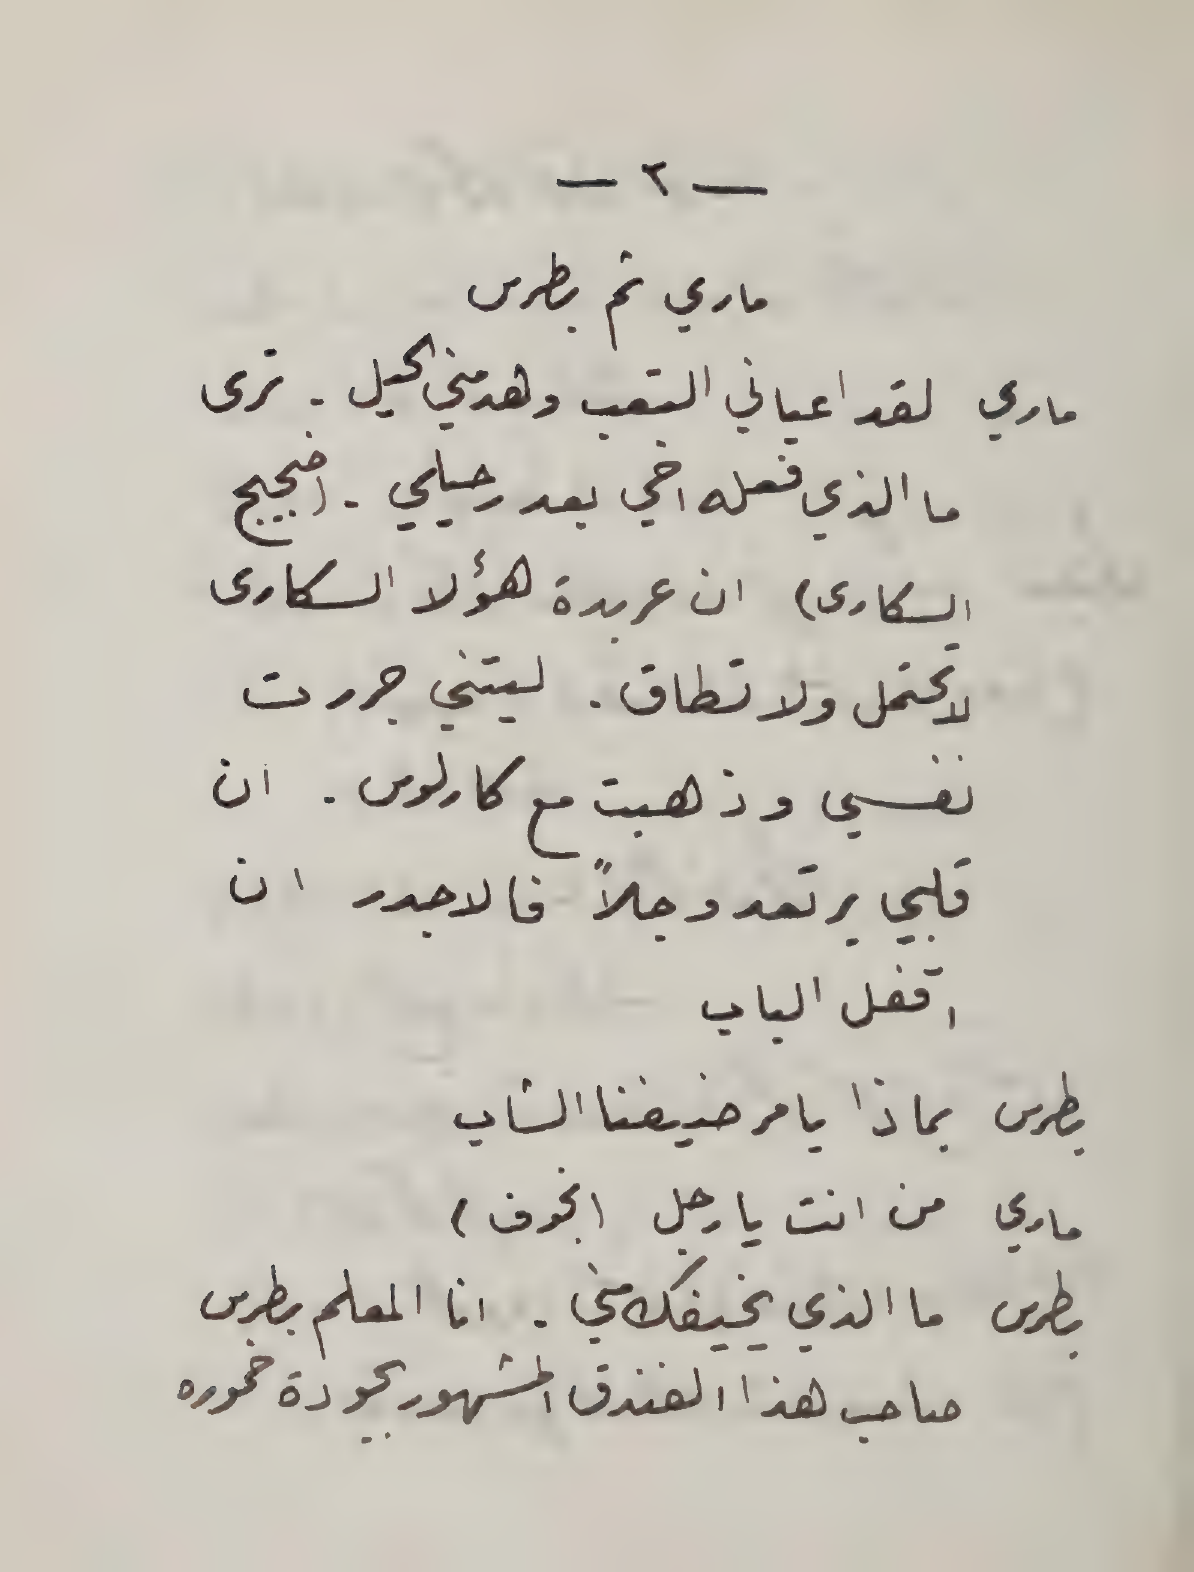 — ٢ —
ماري ثم بطرس
ماري لقد اعياني التعب وهد مني الحيل . ترى
ما الذي فعله اخي بعد رحيلي . (ضجيج
السكارى) ان عربدة هؤلا السكارى
لا تحتمل ولا تطاق . ليتني جررت
نفسي وذهبت مع كارلوس . ان
قلبي يرتعد وجلاً فالاجدر ان
اقفل الباب
بطرس بماذا يامر ضيفنا الشاب
ماري من انت يا رجل (بخوف)
بطرس ما الذي يخيفك مني . انا المعلم بطرس
صاحب هذا الفندق المشهور بجودة خموره